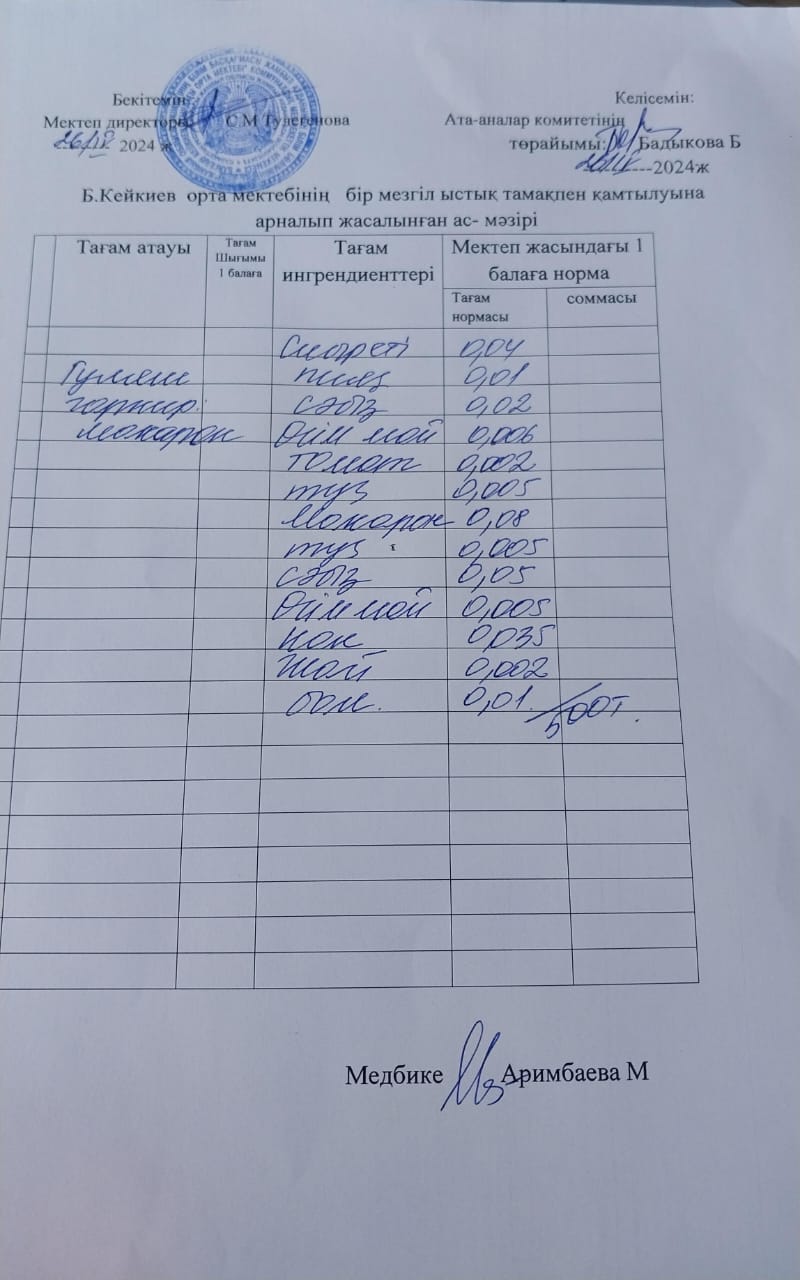 Бекітемін: Келісемін:
Мектеп директоры С М Тулегенова Ата-аналар комитетінің
26/ІХ 2024 ж төрайымы: Бадыкова Б
-2024ж
Б.Кейкиев орта мектебінің бір мезгіл ыстық тамақпен қамтылуына
арналып жасалынған ас- мәзірі
Тағам атауы Тағам Шығымы 1 балаға Тағам ингрендиенттері Мектеп жасындағы 1 балаға норма
Тағам нормасы соммасы
0,04
Гуляш пияз 0,01
гарнир: сәбіз 0,02
макарон Өсім май 0,006
томат 0,002
тұз 0,005
Макарон 0,08
тұз 0,005
сәбіз 0,05
Өсім май 0,005
нан 0,035
Шай 0,002
0,01. 500т.
Медбике Аримбаева М